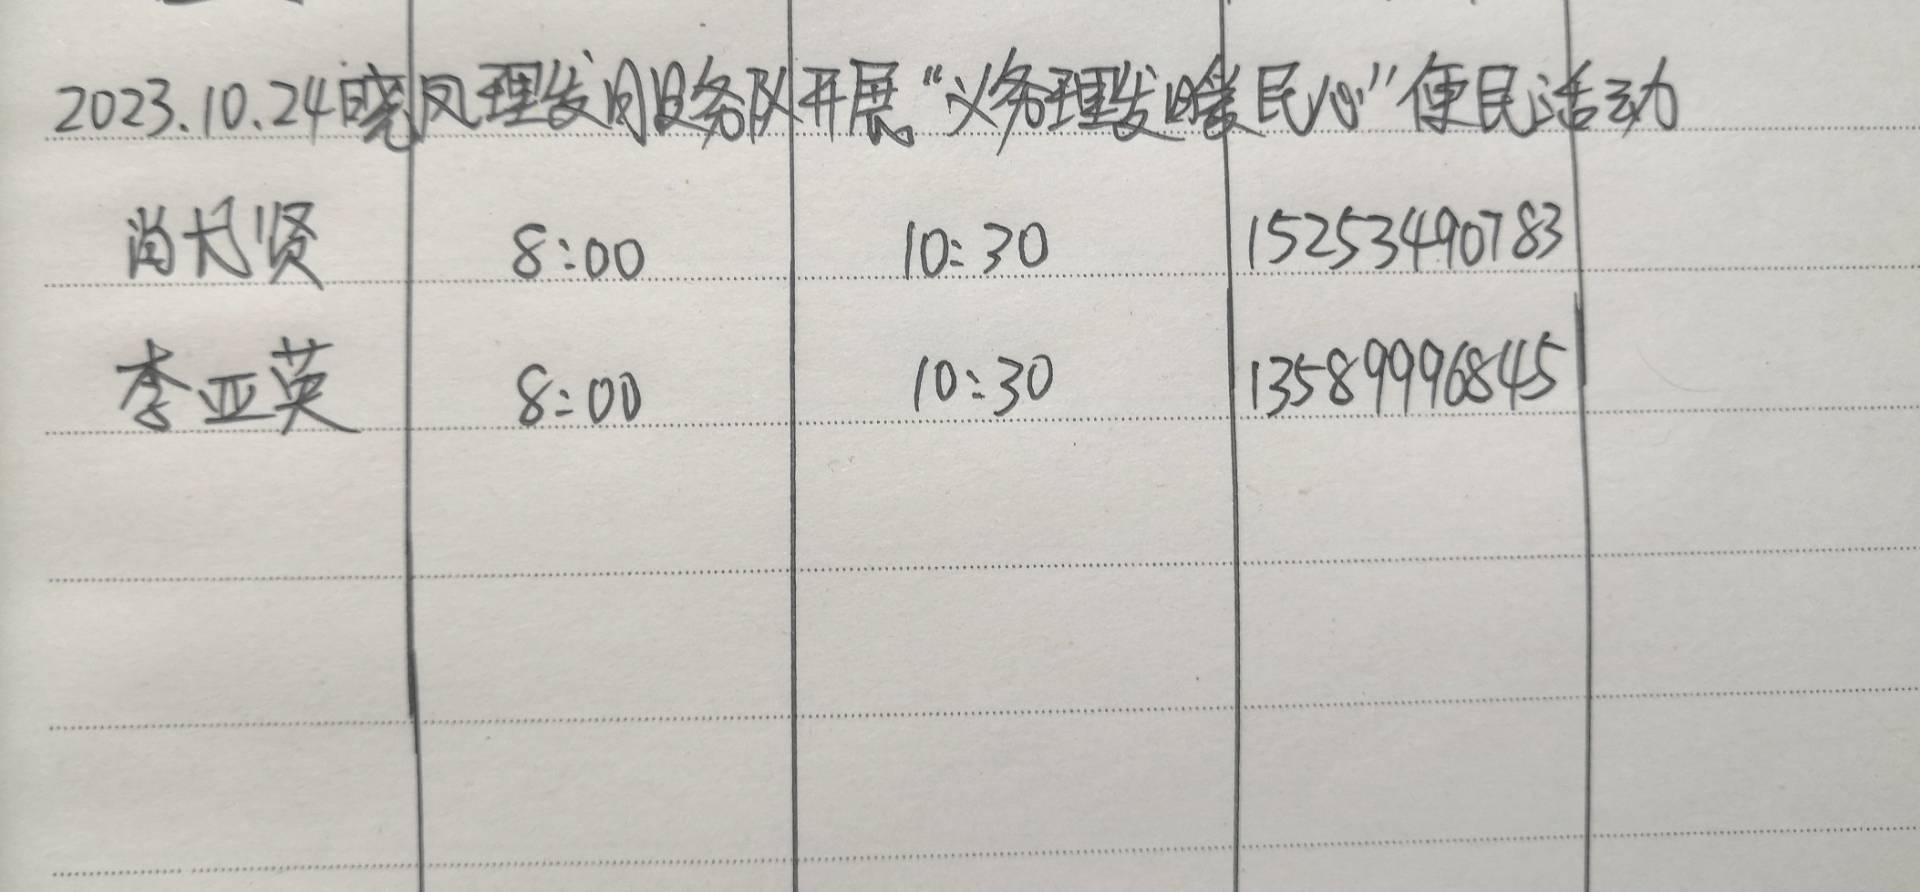 2023.10.24晓风理发服务队开展“义务理发暖民心”便民活动
8:00 10:30 15253490783
李亚英 8:00 10:30 13589996845